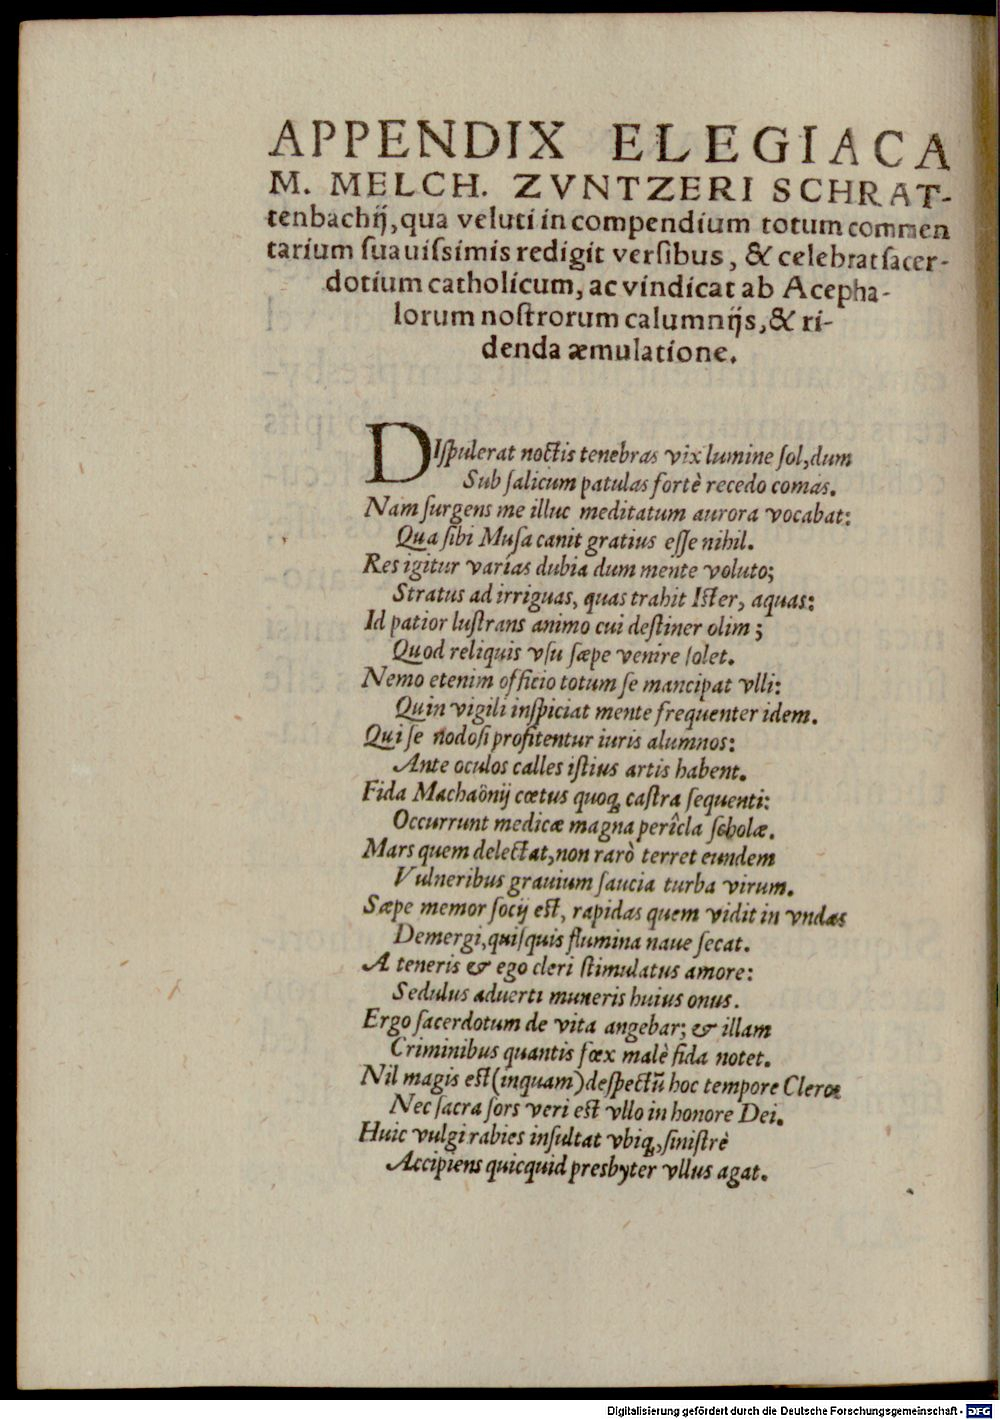 APPENDIX ELEGIACA
M. MELCH. ZVNTZERI SCHRAT-
tenbachĳ, qua veluti in compendium totum commen
tarium ſuauiſsimis redigit verſibus, & celebrat ſacer-
dotium catholicum, ac vindicat ab Acepha-
lorum noſtrorum calumnĳs, & ri-
denda æmulatione.
DIſpulerat noctis tenebras vix lumine ſol, dum
Sub ſalicum patulas fortè recedo comas.
Nam ſurgens me illuc meditatum aurora vocabat:
Qua ſibi Muſa canit gratius eſſe nihil.
Res igitur varías dubia dum mente voluto;
Stratus ad irriguas, quas trahit Iſter, aquas:
Id patior luſtrans animo cui deſtiner olim;
Quod reliquis vſu ſæpe venire ſolet.
Nemo etenim officio totum ſe mancipat vlli:
Quin vigili inſpiciat mente frequenter idem.
Qui ſe nodoſi profitentur iuris alumnos:
Ante oculos calles iſtius artis habent.
Fida Machaônĳ cœtus quoq; caſtra ſequenti:
Occurrunt medicæ magna perîcla ſcholæ.
Mars quem delectat, non rarò terret eundem
Vulneribus grauium ſaucia turba virum.
Sæpe memor ſocĳ eſt, rapidas quem vidit in vndas
Demergi, quiſquis flumina naue ſecat.
A teneris & ego cleri ſtimulatus amore:
Sedulus aduerti muneris huius onus.
Ergo ſacerdotum de vita angebar; & illam
Criminibus quantis fœx malè fida notet.
Nil magis eſt (inquam) deſpectũ hoc tempore Clero:
Nec ſacra ſors veri eſt vllo in honore Dei.
Huic vulgi rabies inſultat vbiq;, ſiniſtrè
Accipiens quicquid presbyter vllus agat.
Digitalisierung gefördert durch die Deutsche Forschungsgemeinschaft - DFG